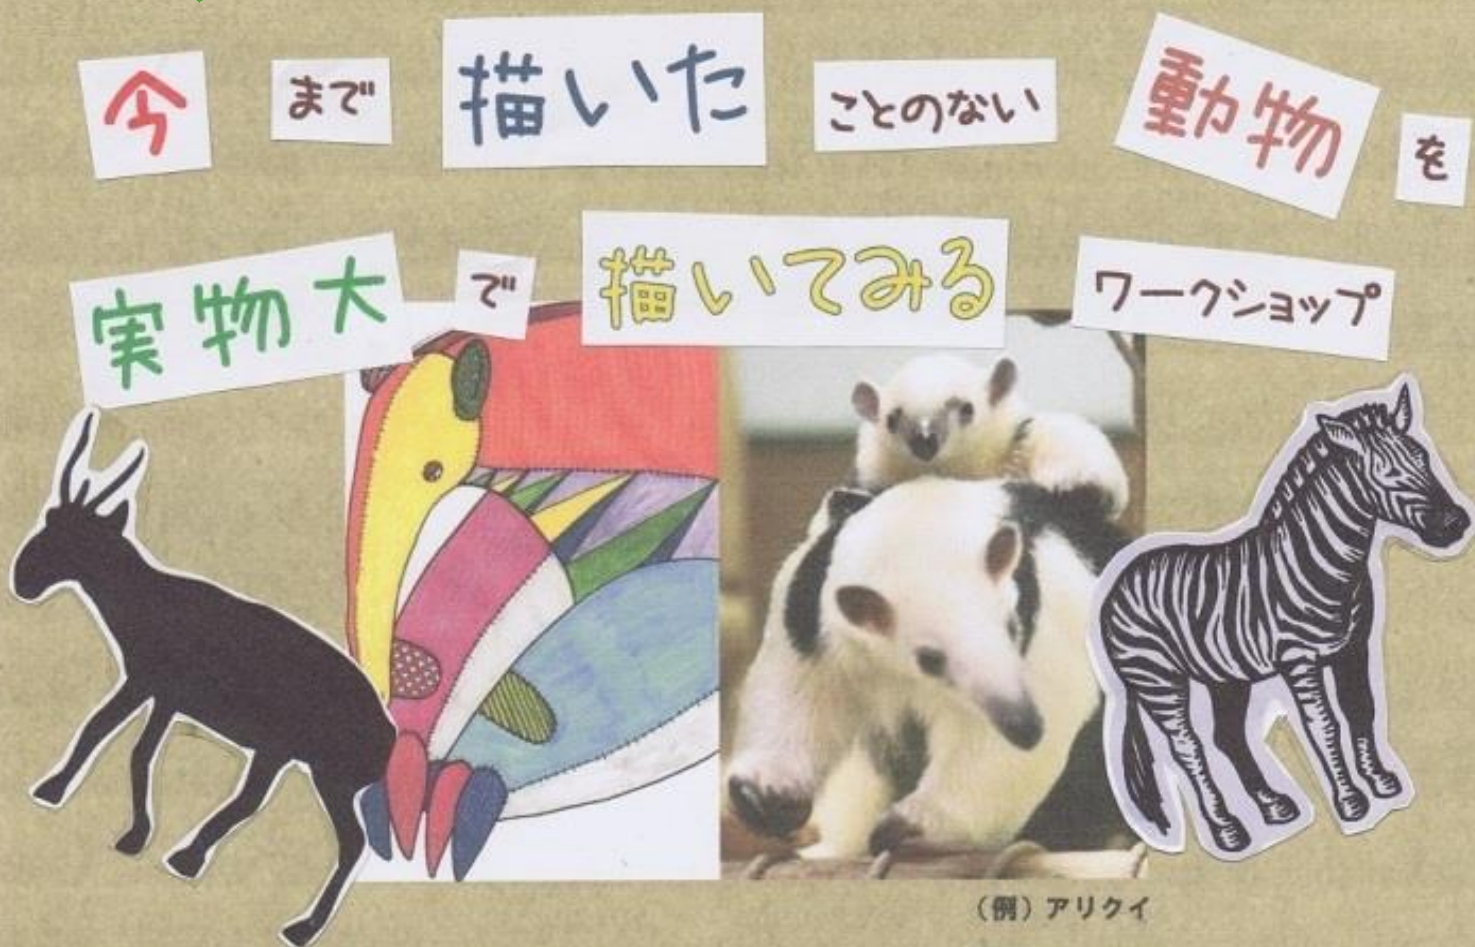 今まで描いたことのない動物を
実物大で描いてみるワークショップ
(例)アリクイ